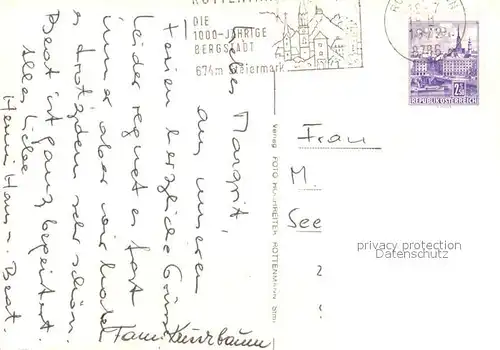 ROTTENMANN
DIE
1000-JÄHRIGE
BERGSTADT
674m Steiermark
8786
2.50
REPUBLIK ÖSTERREICH
Liebe Margrit,
aus unseren
Ferien herzliche Grüsse
Leider regnet es fast
immer aber wir haben
es trotzdem sehr schön.
Beat ist ganz begeistert.
Alles Liebe
Henni Hans u. Beat.
Fam.
Verlag FOTO HOCHREITER ROTTENMANN Stmk
Frau
M.
See
privacy protection
Datenschutz